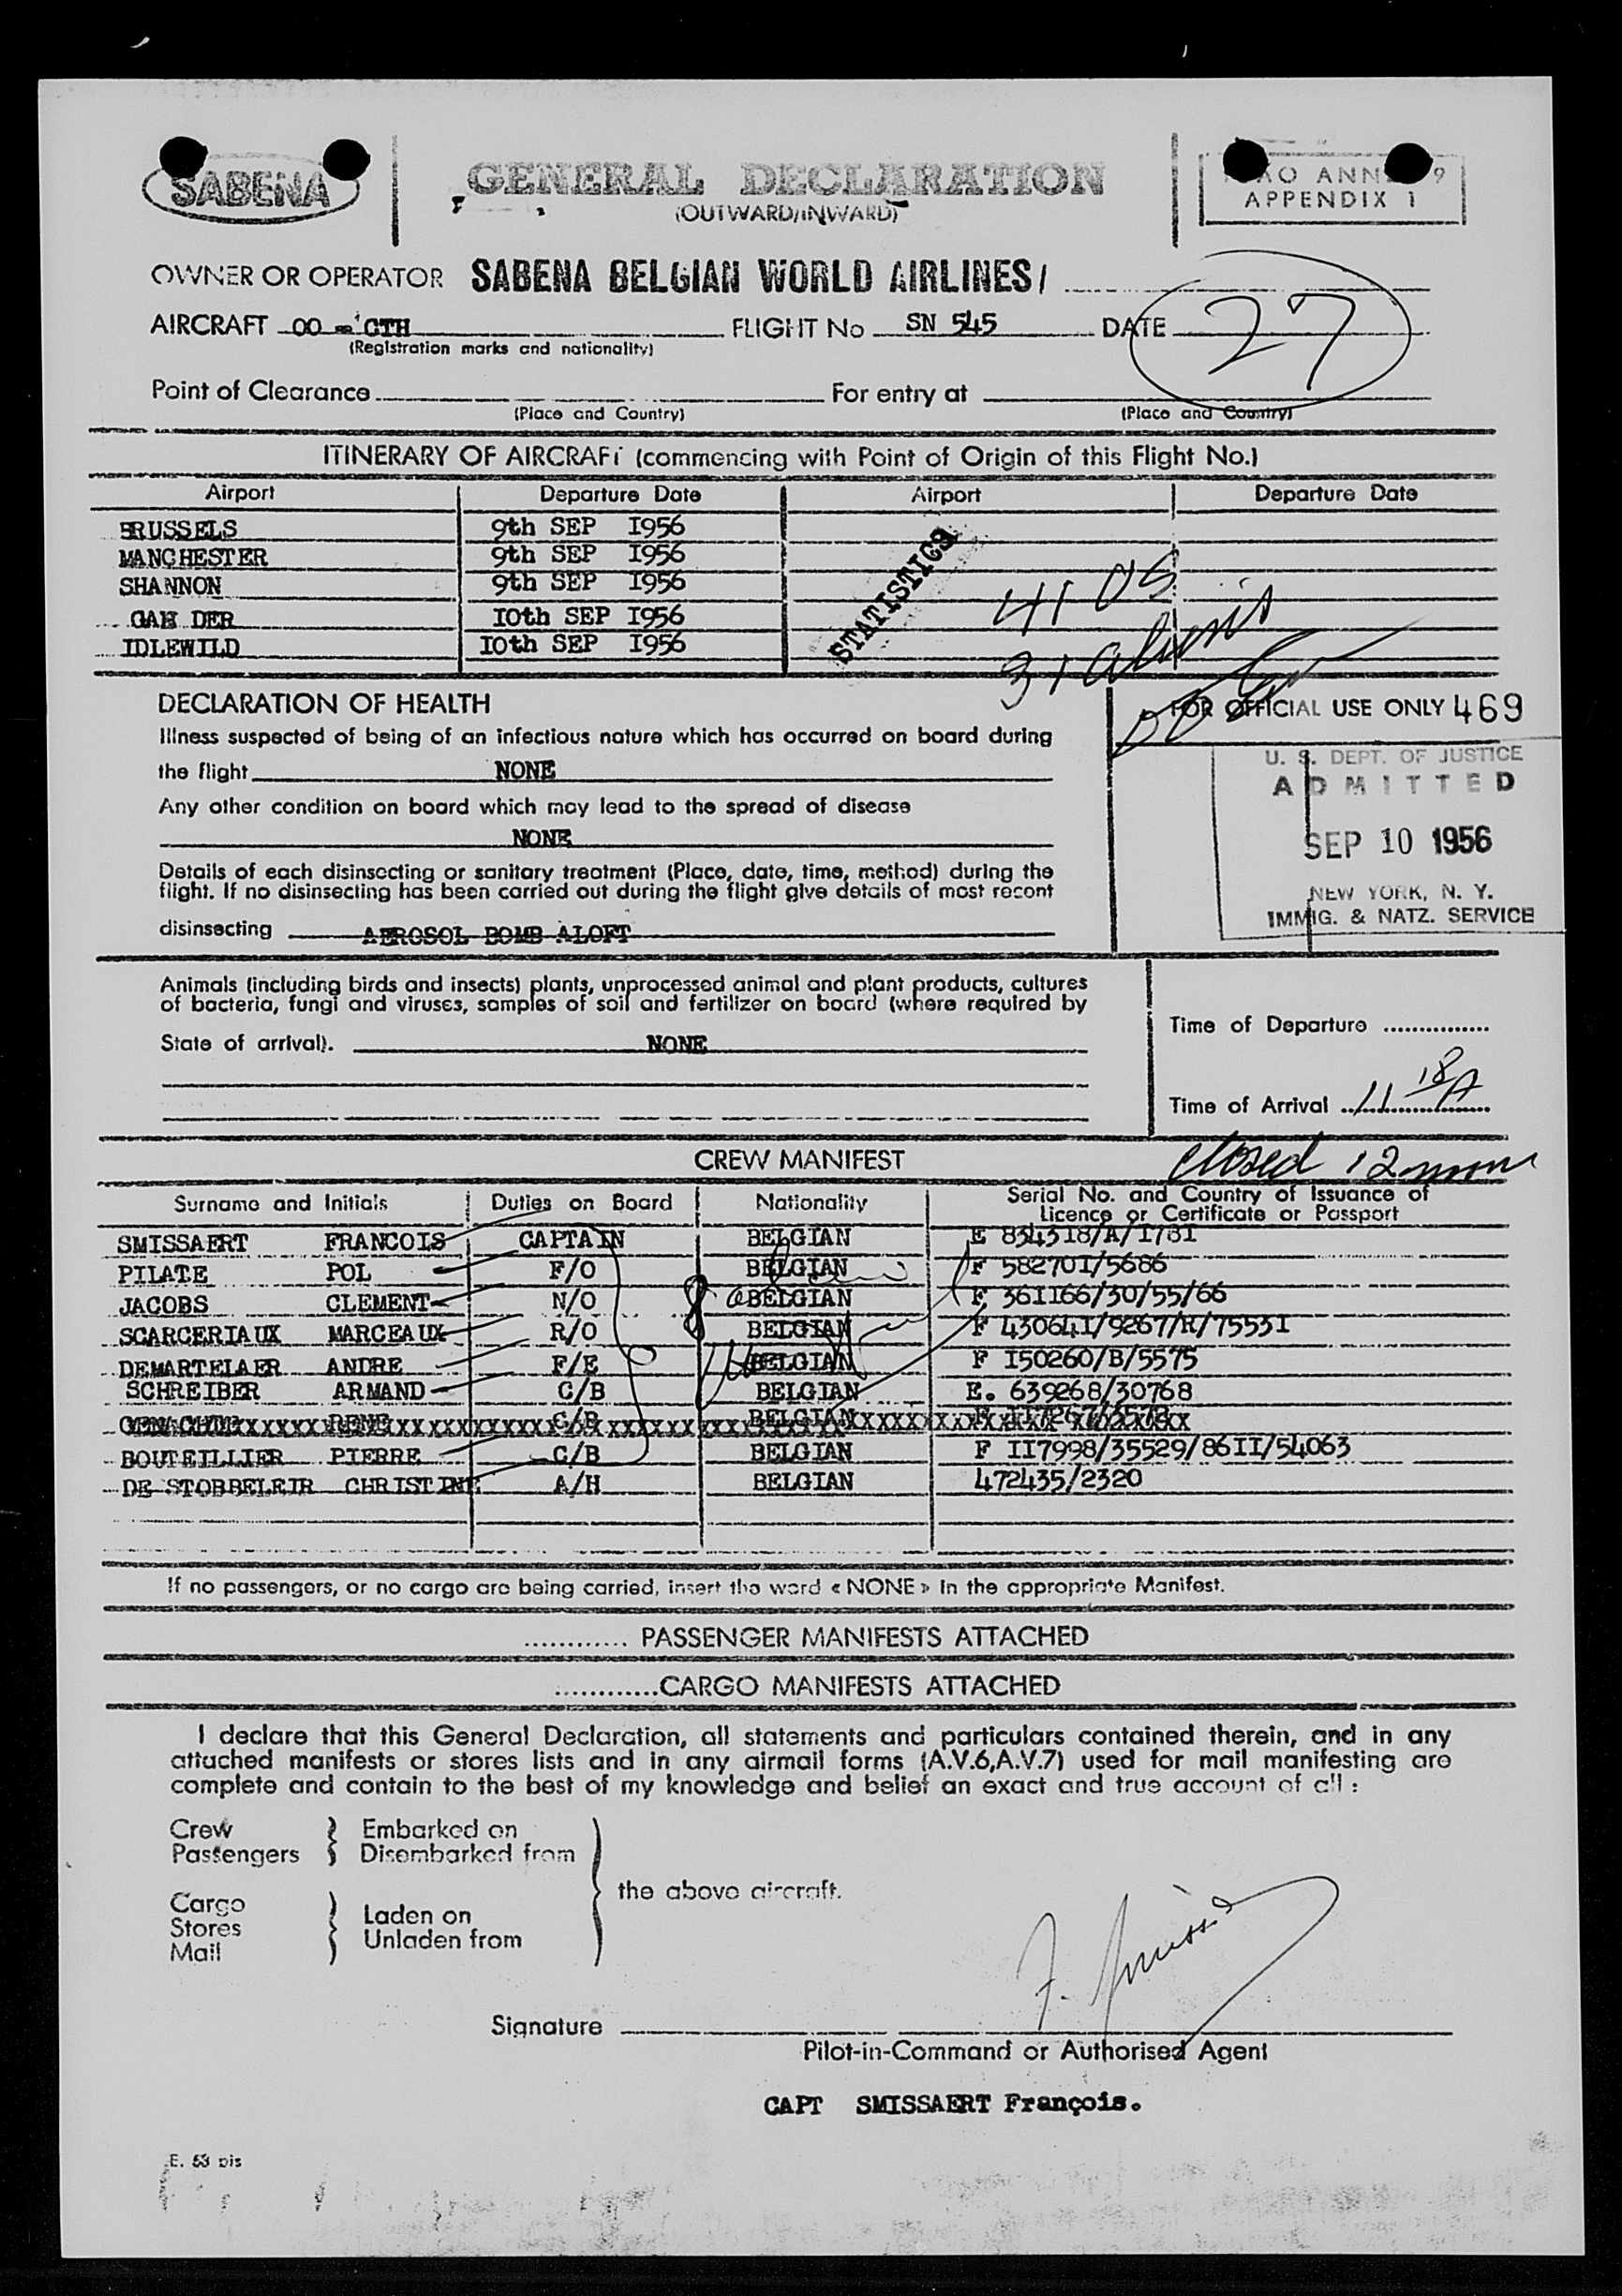 SABENA
GENERAL DECLARATION
(OUTWARD/INWARD)
APPENDIX 1
OWNER OR OPERATOR SABENA BELGIAN WORLD AIRLINES/
AIRCRAFT OO - CTH FLIGHT No SN 545 DATE 27
(Registration marks and nationality)
Point of Clearance For entry at
(Place and Country) (Place and Country)
ITINERARY OF AIRCRAFT (commencing with Point of Origin of this Flight No.)
Airport Departure Date Airport Departure Date
BRUSSELS 9th SEP I956
MANCHESTER 9th SEP I956
SHANNON 9th SEP I956
GAN DER I0th SEP I956
IDLEWILD I0th SEP I956
STATISTICS
DECLARATION OF HEALTH
FOR OFFICIAL USE ONLY 469
Illness suspected of being of an infectious nature which has occurred on board during
the flight NONE
Any other condition on board which may lead to the spread of disease
NONE
Details of each disinsecting or sanitary treatment (Place, date, time, method) during the
flight. If no disinsecting has been carried out during the flight give details of most recent
disinsecting AEROSOL BOMB ALOFT
U. S. DEPT. OF JUSTICE
ADMITTED
SEP 10 1956
NEW YORK, N. Y.
IMMIG. & NATZ. SERVICE
Animals (including birds and insects) plants, unprocessed animal and plant products, cultures
of bacteria, fungi and viruses, samples of soil and fertilizer on board (where required by
State of arrival). NONE
Time of Departure
Time of Arrival 11 18 A
closed 12
CREW MANIFEST
Surname and Initials Duties on Board Nationality Serial No. and Country of Issuance of
Licence or Certificate or Passport
SMISSAERT FRANCOIS CAPTAIN BELGIAN E 834318/A/I781
PILATE POL F/O BELGIAN F 58270I/5686
JACOBS CLEMENT N/O BELGIAN F 36II66/30/55/66
SCARCERIAUX MARCEAUX R/O BELGIAN F 43064I/9267/R/7553I
DEMARTELAER ANDRE F/E BELGIAN F I50260/B/5575
SCHREIBER ARMAND C/B BELGIAN E. 639268/30768
RENE C/B BELGIAN
BOUTEILLIER PIERRE C/B BELGIAN F II7998/35529/86II/54063
DE STOBBELEIR CHRISTINE A/H BELGIAN 472435/2320
If no passengers, or no cargo are being carried, insert the word « NONE » in the appropriate Manifest.
............ PASSENGER MANIFESTS ATTACHED
............CARGO MANIFESTS ATTACHED
I declare that this General Declaration, all statements and particulars contained therein, and in any
attached manifests or stores lists and in any airmail forms (A.V.6,A.V.7) used for mail manifesting are
complete and contain to the best of my knowledge and belief an exact and true account of all :
Crew Embarked on
Passengers Disembarked from
the above aircraft.
Cargo
Stores Laden on
Mail Unladen from
Signature
Pilot-in-Command or Authorised Agent
CAPT SMISSAERT François.
E. 53 bis